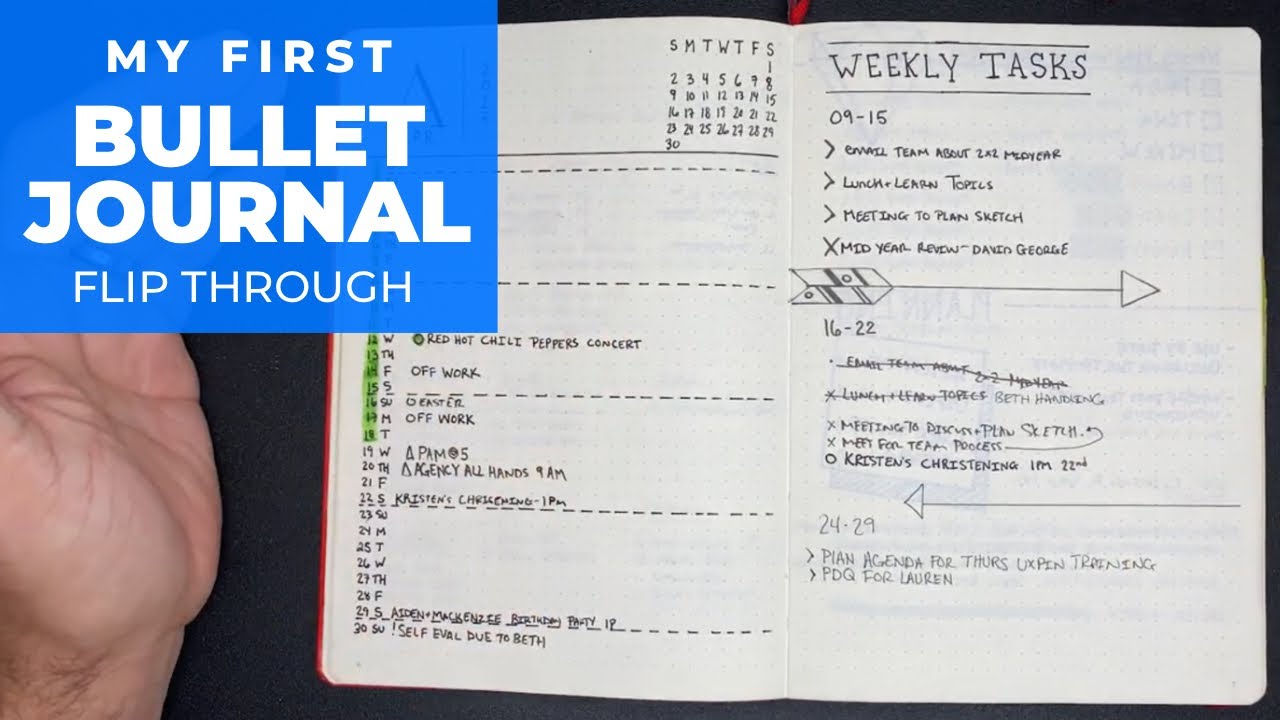 MY FIRST
BULLET
JOURNAL
FLIP THROUGH
S M T W T F S
1
2 3 4 5 6 7 8
9 10 11 12 13 14 15
16 17 18 19 20 21 22
23 24 25 26 27 28 29
30
12 W O RED HOT CHILI PEPPERS CONCERT
13 TH
14 F OFF WORK
15 S
16 SU O EASTER
17 M OFF WORK
18 T
19 W Δ PAM @ 5
20 TH Δ AGENCY ALL HANDS 9 AM
21 F
22 S KRISTEN'S CHRISENING - 1PM
23 SU
24 M
25 T
26 W
27 TH
28 F
29 S AIDEN + MACKENZIE BIRTHDAY PARTY 1P
30 SU ! SELF EVAL DUE TO BETH
WEEKLY TASKS
09-15
> EMAIL TEAM ABOUT 2X2 MIDYEAR
> LUNCH + LEARN TOPICS
> MEETING TO PLAN SKETCH
X MID YEAR REVIW - DAVID GEORGE
16-22
· EMAIL TEAM ABOUT 2x2 MIDYEAR
X LUNCH + LEARN TOPICS BETH HANDLING
X MEETING TO DISCUSS + PLAN SKETCH.
X MEET FOR TEAM POCESS
O KRISTEN'S CHRISTENING 1PM 22nd
24-29
> PLAN AGENDA FOR THURS UXPIN TRAINING
> PDQ FOR LAUREN